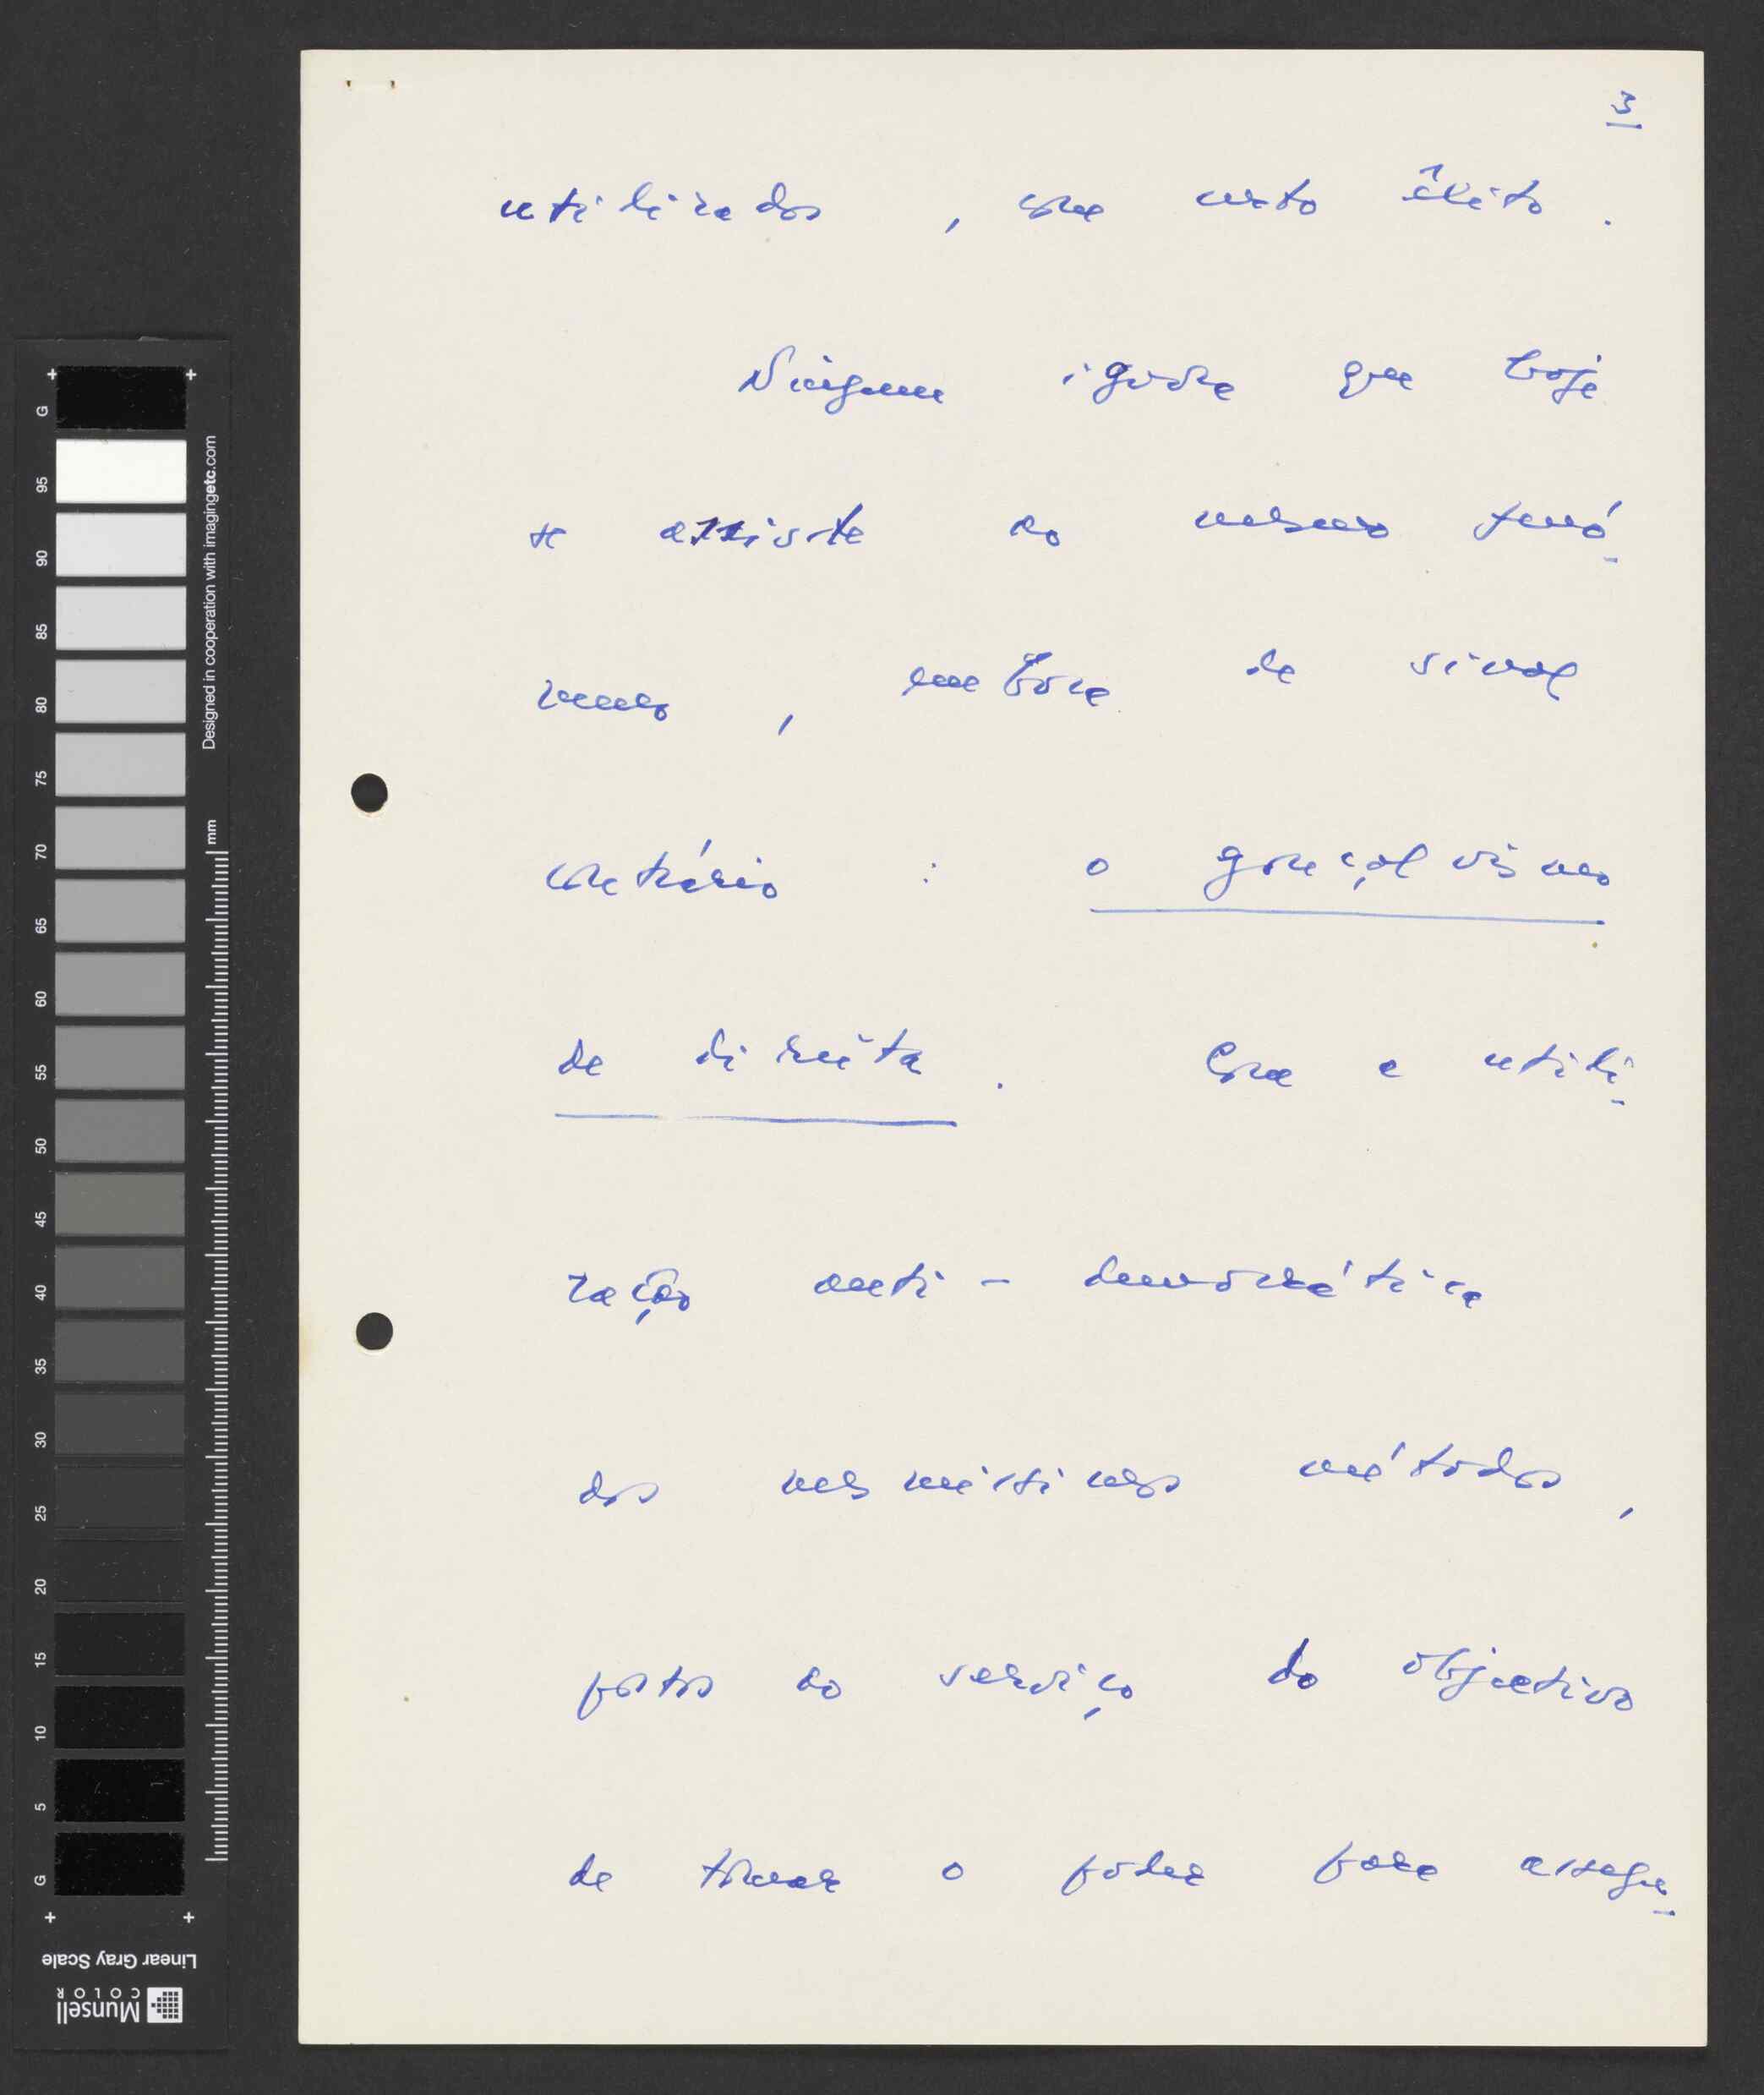 3
utilizados, com certo êxito.
Ninguem ignora que hoje
se assiste ao mesmo fenó-
meno, embora de sinal
contrário : o gonçalvismo
de direita. Com a utili-
zação anti-democrática
dos mesmíssimos métodos,
postos ao serviço do objectivo
de tomar o poder para assegu-
G
95
90
85
80
75
70
65
60
55
50
45
40
35
30
25
20
15
10
5
G
Designed in cooperation with imagingetc.com
mm
Linear Gray Scale
Munsell
COLOR